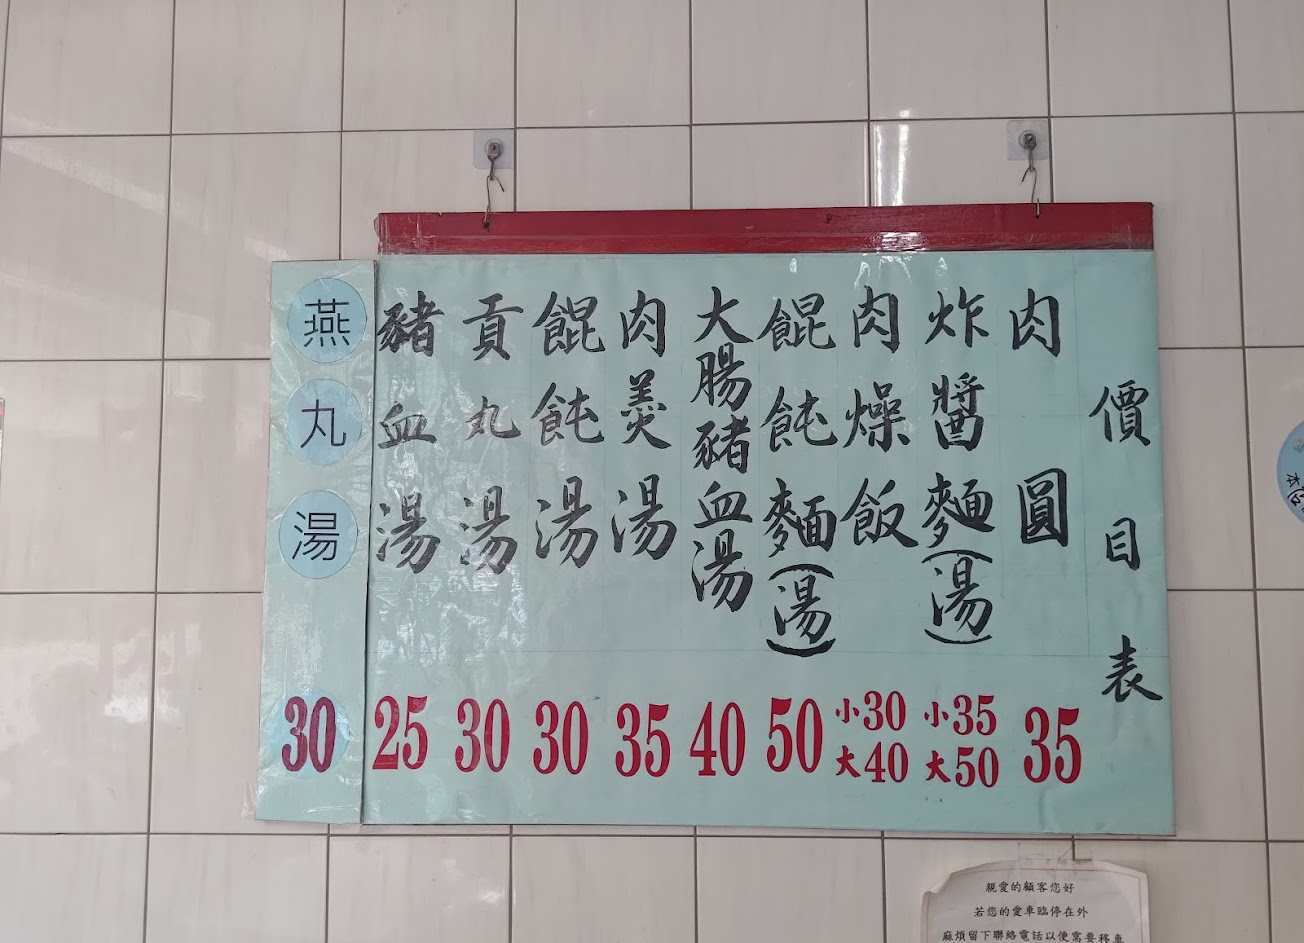 價目表
肉圓 35
炸醬麵(湯) 小35 大50
肉燥飯 小30 大40
餛飩麵(湯) 50
大腸豬血湯 40
肉羹湯 35
餛飩湯 30
貢丸湯 30
豬血湯 25
燕丸湯 30
親愛的顧客您好
若您的愛車臨停在外
麻煩留下聯絡電話以便需要移車